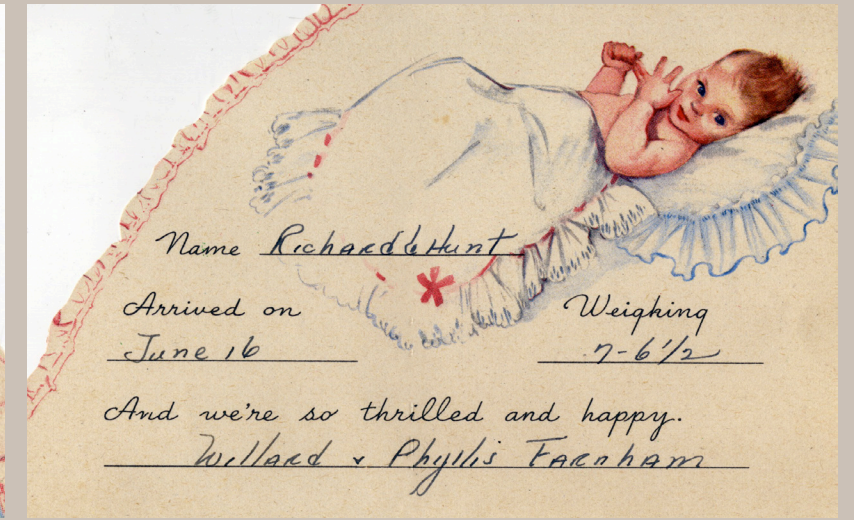 Name Richard Hunt
Arrived on Weighing
June 16 7-6 1/2
And we're so thrilled and happy.
Willard & Phyllis Farnham